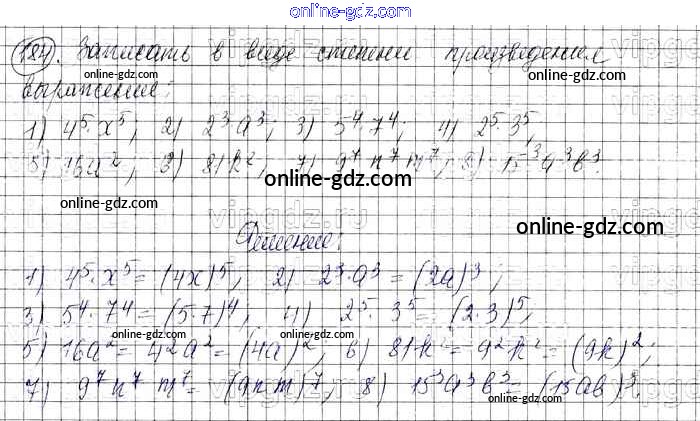 online-gdz.com
184). Записать в виде степени произведения
online-gdz.com online-gdz.com
выражение:
1) 4⁵·x⁵; 2) 2³·a³; 3) 5⁴·7⁴; 4) 2⁵·3⁵;
5) 16a²; 6) 81k²; 7) 9⁷n⁷m⁷; 8) 15³a³b³.
online-gdz.com
online-gdz.com
vipgdz.ru
online-gdz.com
Решение:
1) 4⁵·x⁵ = (4x)⁵; 2) 2³·a³ = (2a)³;
3) 5⁴·7⁴ = (5·7)⁴; 4) 2⁵·3⁵ = (2·3)⁵;
online-gdz.com online-gdz.com
5) 16a² = 4²a² = (4a)²; 6) 81k² = 9²k² = (9k)²;
7) 9⁷n⁷m⁷ = (9nm)⁷; 8) 15³a³b³ = (15ab)³.
online-gdz.com online-gdz.com